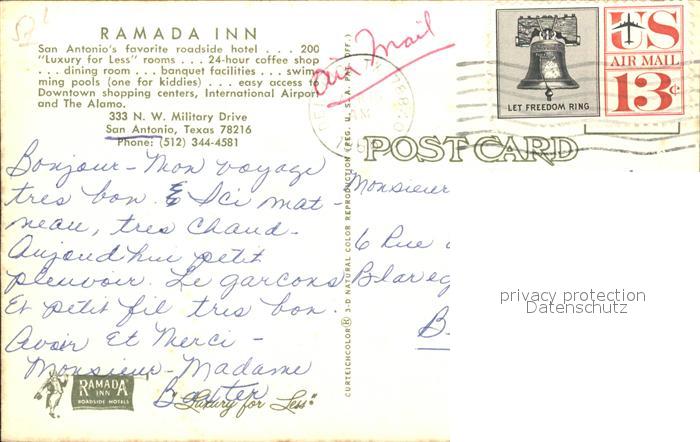 RAMADA INN
San Antonio's favorite roadside hotel . . . 200
"Luxury for Less" rooms . . . 24-hour coffee shop
. . . dining room . . . banquet facilities . . . swim-
ming pools (one for kiddies) . . . easy access to
Downtown shopping centers, International Airport
and The Alamo.
333 N. W. Military Drive
San Antonio, Texas 78216
Phone: (512) 344-4581
Bonjour - Mon voyage
tres bon. & Ici mat-
neau, tres chaud.
Aujoudhui petit
pleuvoir. Le garcons
Et petit fil tres bon.
Avoir Et Merci -
Monsieur - Madame
Baxter
RAMADA
INN
ROADSIDE HOTELS
"Luxury for Less"
CURTEICHCOLOR® 3-D NATURAL COLOR REPRODUCTION (REG. U.S.A. PAT. OFF.)
Air Mail
LET FREEDOM RING
US
AIR MAIL
13c
POST CARD
Monsieur
6 Rue
Blareg
B
privacy protection
Datenschutz